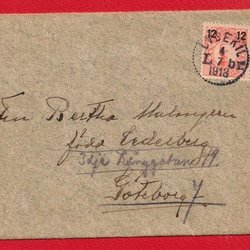 12 12
LYSEKIL
4
7
1918
Fru Bertha Malmgren
född Cederberg
3dje Långgatan 19.
Göteborg 7